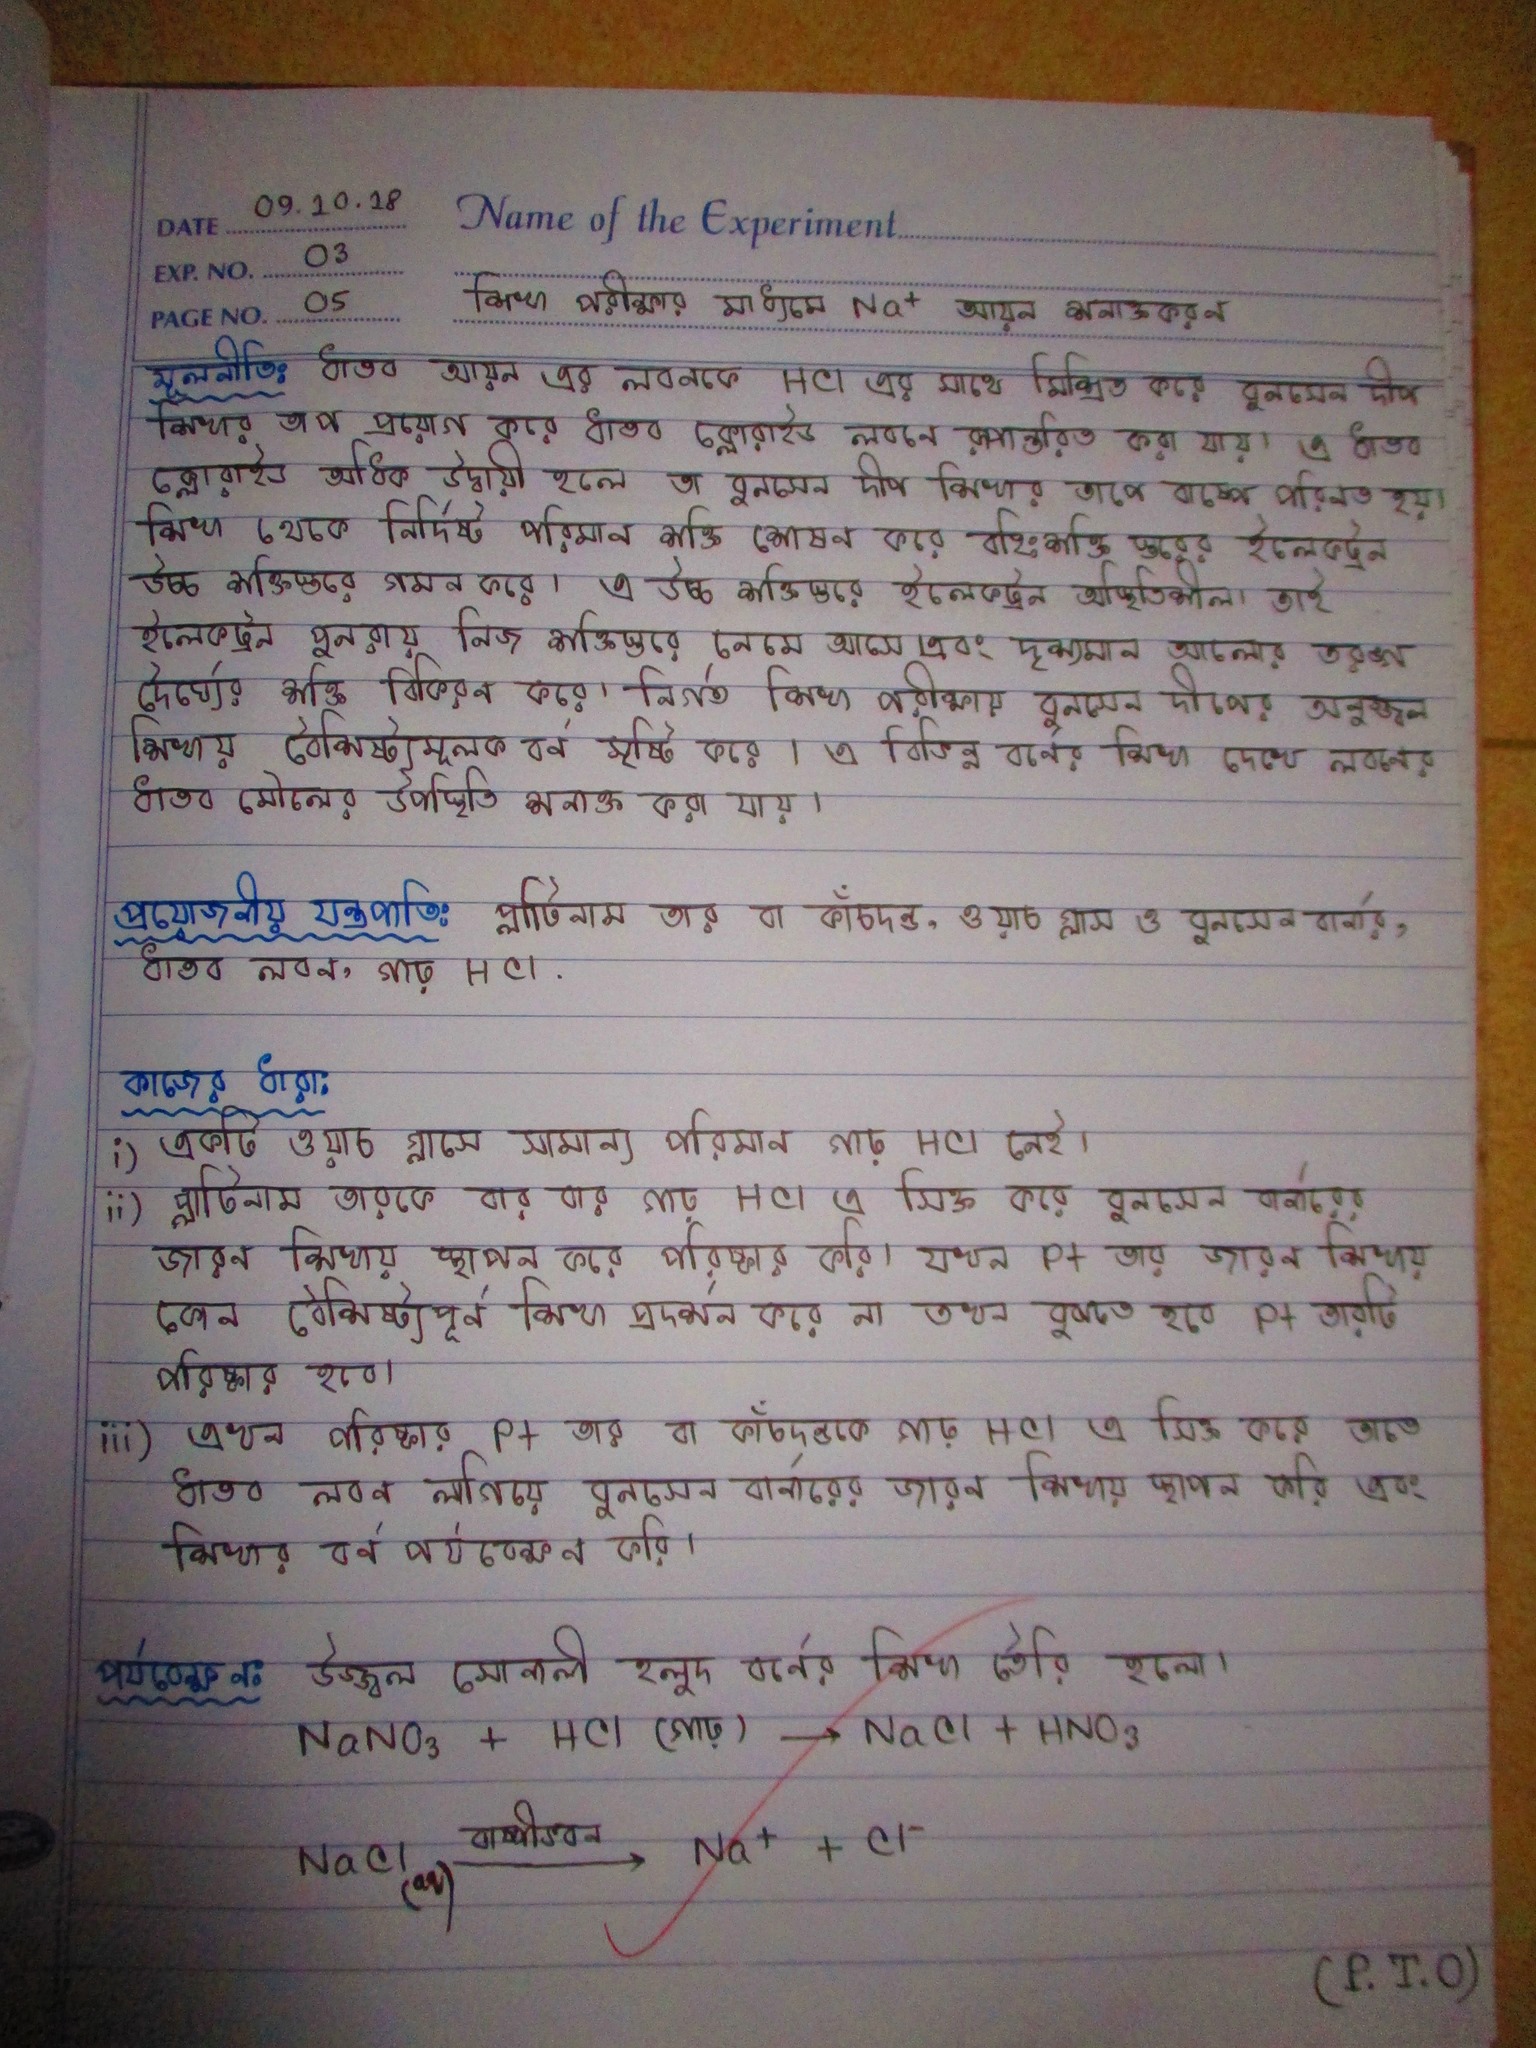 DATE 09.10.18 Name of the Experiment
EXP. NO. 03
PAGE NO. 05 শিখা পরীক্ষার মাধ্যমে Na+ আয়ন শনাক্তকরন
মূলনীতিঃ ধাতব আয়ন এর লবনকে HCl এর সাথে মিশ্রিত করে বুনসেন দীপ
শিখার তাপ প্রয়োগ করে ধাতব ক্লোরাইড লবনে রূপান্তরিত করা যায়। এ ধাতব
ক্লোরাইড অধিক উদ্বায়ী হলে তা বুনসেন দীপ শিখার তাপে বাষ্পে পরিনত হয়।
শিখা থেকে নির্দিষ্ট পরিমান শক্তি শোষন করে বহিঃশক্তি স্তরের ইলেকট্রন
উচ্চ শক্তিস্তরে গমন করে। এ উচ্চ শক্তিস্তরে ইলেকট্রন অস্থিতিশীল। তাই
ইলেকট্রন পুনরায় নিজ শক্তিস্তরে নেমে আসে। এবং দৃশ্যমান আলোর তরঙ্গ
দৈর্ঘ্যের শক্তি বিকিরন করে। নির্গত শিখা পরীক্ষায় বুনসেন দীপের অনুজ্বল
শিখায় বৈশিষ্ট্যমূলক বর্ন সৃষ্টি করে। এ বিভিন্ন বর্নের শিখা দেখে লবনের
ধাতব মৌলের উপস্থিতি শনাক্ত করা যায়।
প্রয়োজনীয় যন্ত্রপাতিঃ প্লাটিনাম তার বা কাঁচদন্ড, ওয়াচ গ্লাস ও বুনসেন বার্নার,
ধাতব লবন, গাঢ় HCl.
কাজের ধারাঃ
i) একটি ওয়াচ গ্লাসে সামান্য পরিমান গাঢ় HCl নেই।
ii) প্লাটিনাম তারকে বার বার গাঢ় HCl এ সিক্ত করে বুনসেন বার্নারের
জারন শিখায় স্থাপন করে পরিষ্কার করি। যখন Pt তার জারন শিখায়
কোন বৈশিষ্ট্যপূর্ন শিখা প্রদর্শন করে না তখন বুঝতে হবে Pt তারটি
পরিষ্কার হবে।
iii) এখন পরিষ্কার Pt তার বা কাঁচদন্ডকে গাঢ় HCl এ সিক্ত করে তাতে
ধাতব লবন লাগিয়ে বুনসেন বার্নারের জারন শিখায় স্থাপন করি এবং
শিখার বর্ন পর্যবেক্ষন করি।
পর্যবেক্ষনঃ উজ্জ্বল সোনালী হলুদ বর্নের শিখা তৈরি হলো।
NaNO3 + HCl (গাঢ়) → NaCl + HNO3
বাষ্পীভবন
NaCl(aq) → Na+ + Cl-
(P.T.O)